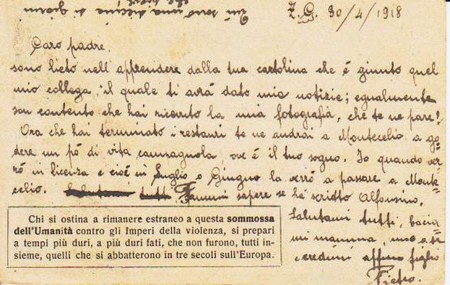 Z.G. 30/4/1918
Caro padre,
sono lieto nell'apprendere dalla tua cartolina che è giunto quel
mio collega, il quale ti avrà dato mie notizie; egualmente
son contento che hai ricevuto la mia fotografia, che te ne pare?
Ora che hai terminato i restauri te ne andrai a Montecelio a go-
dere un pò di vita campagnola, ove è il tuo sogno. Io quando ver-
rò in licenza e cioè in Luglio o Giugno la verrò a passare a Monte-
celio. Fammi sapere se ha scritto Alfonsino.
Salutami tutti, bacia-
mi mamma
credimi affmo figlio
Pietro.
Chi si ostina a rimanere estraneo a questa sommossa
dell'Umanità contro gli Imperi della violenza, si prepari
a tempi più duri, a più duri fati, che non furono, tutti in-
sieme, quelli che si abbatterono in tre secoli sull'Europa.